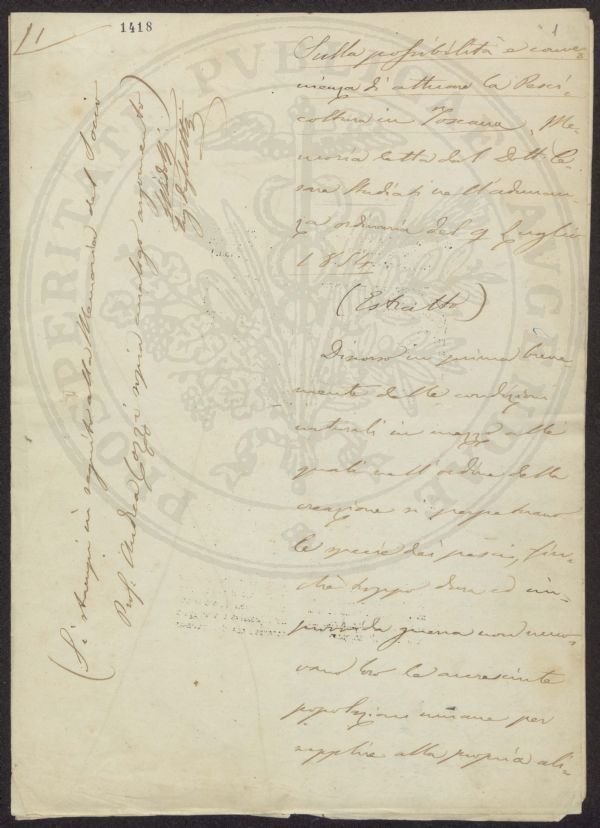 1418
1
Sulla possibilità e conve-
nienza di attivare la Pesci-
coltura in Toscana. Me-
moria letta dal Dott. Ce-
sare Studiati nell'adunan-
za ordinaria del 9 Luglio
1854.
(Estratto)
Discorso in prima breve-
mente delle condizioni
naturali in mezzo alle
quali nell'ordine della
creazione si perpetuano
le specie dei pesci, fin-
chè troppo dura ed im-
provvida guerra non muovano
loro le accresciute
popolazioni umane per
supplire alla propria ali-
(Si stampi in seguito alla Memoria del Socio
Prof. Andrea Cozzi sopra analogo argomento)
PROSPERITATI PVBLICAE AVGENDAE